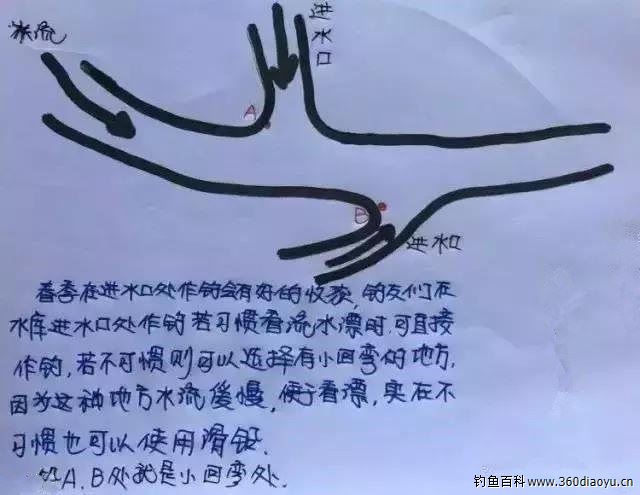 水流
进水口
A
B
进水口
春季在进水口处作钓会有好的收获,钓友们在
水库进水口处作钓若习惯看流水漂时,可直接
作钓,若不习惯则可以选择有小回弯的地方,
因为这种地方水流缓慢,便于看漂,实在不
习惯也可以使用滑铅.
如A.B处就是小回弯处.
钓鱼百科www.360diaoyu.cn